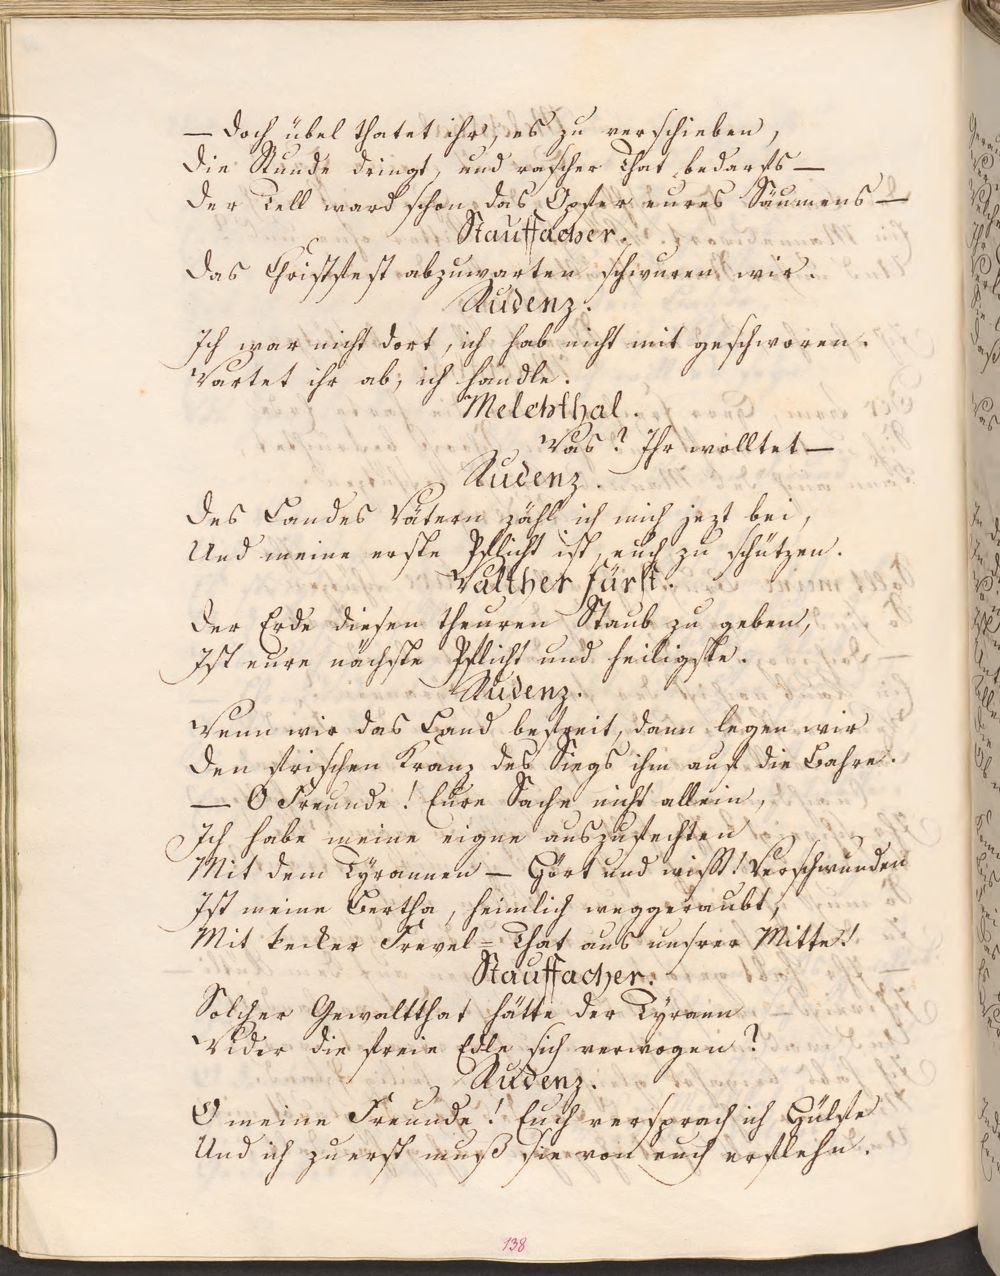 — Doch übel thatet ihr, es zu verschieben,
Die Stunde dringt, und rascher That bedarfs —
Der Tell ward schon das Opfer eures Säumens —
Stauffacher.
Das Christfest abzuwarten schwuren wir.
Rudenz.
Ich war nicht dort, ich hab nicht mit geschworen.
Wartet ihr ab, ich handle.
Melchthal.
Was? Ihr wolltet —
Rudenz.
Des Landes Vätern zähl ich mich jezt bei,
Und meine erste Pflicht ist, euch zu schützen.
Walther Fürst.
Der Erde diesen theuren Staub zu geben,
Ist eure nächste Pflicht und heiligste.
Rudenz.
Wenn wir das Land befreit, dann legen wir
Den frischen Kranz des Siegs ihm auf die Bahre.
— O Freunde! Eure Sache nicht allein,
Ich habe meine eigne auszufechten
Mit dem Tyrannen — Hört und wißt! Verschwunden
Ist meine Bertha, heimlich weggeraubt,
Mit kecker Frevel=That aus unsrer Mitte!
Stauffacher.
Solcher Gewaltthat hätte der Tyrann
Wider die freie Edle sich verwogen?
Rudenz.
O meine Freunde! Euch versprach ich Hülfe
Und ich zuerst muß sie von euch erflehn.
138